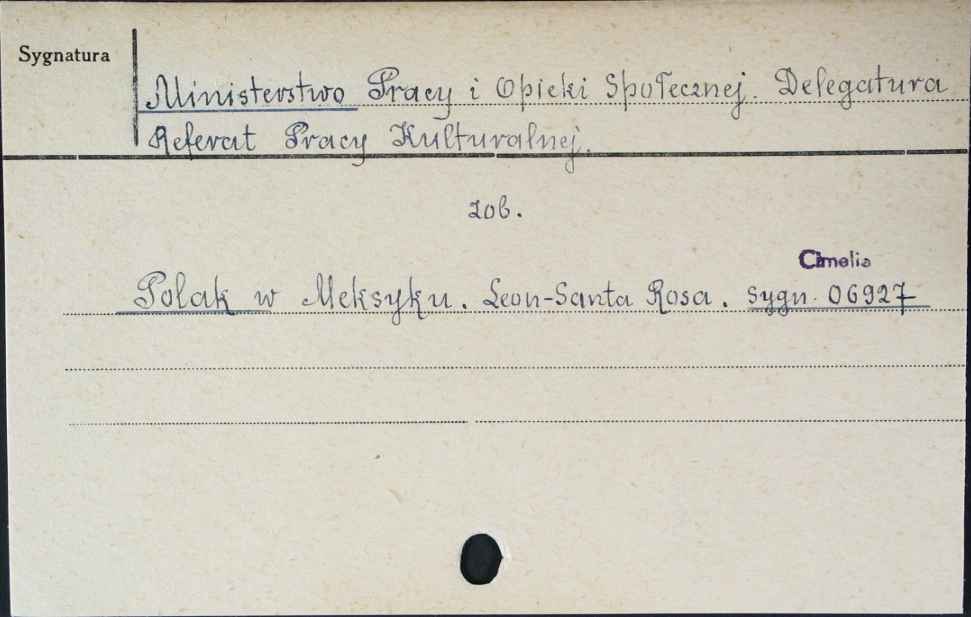 Sygnatura
Ministerstwo Pracy i Opieki Społecznej. Delegatura
Referat Pracy Kulturalnej.
zob.
Cimelia
Polak w Meksyku. Leon-Santa Rosa. sygn. 06927